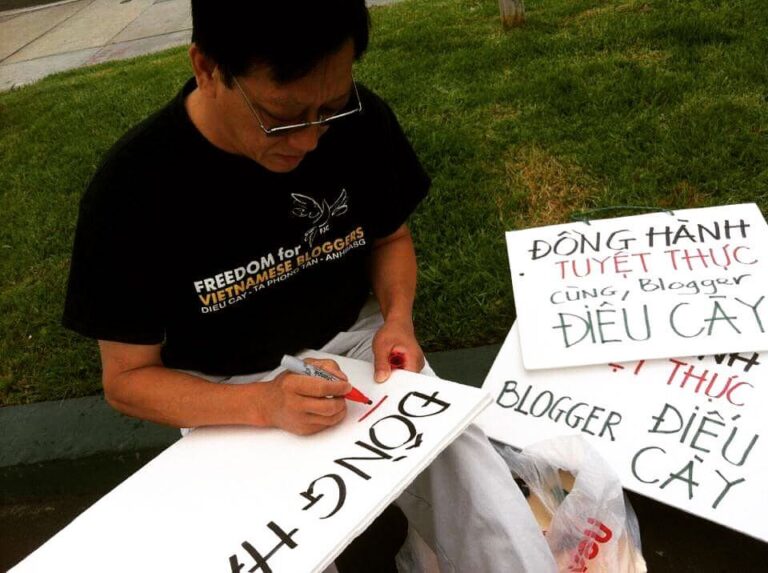 FREEDOM for
VIETNAMESE BLOGGERS
DIEU CAY - TA PHONG TAN - ANHBASG
ĐỒNG HÀNH
TUYỆT THỰC
CÙNG, Blogger
ĐIẾU CÀY
HÀNH
THỰC
BLOGGER ĐIẾU
CÀY
ĐỒNG H